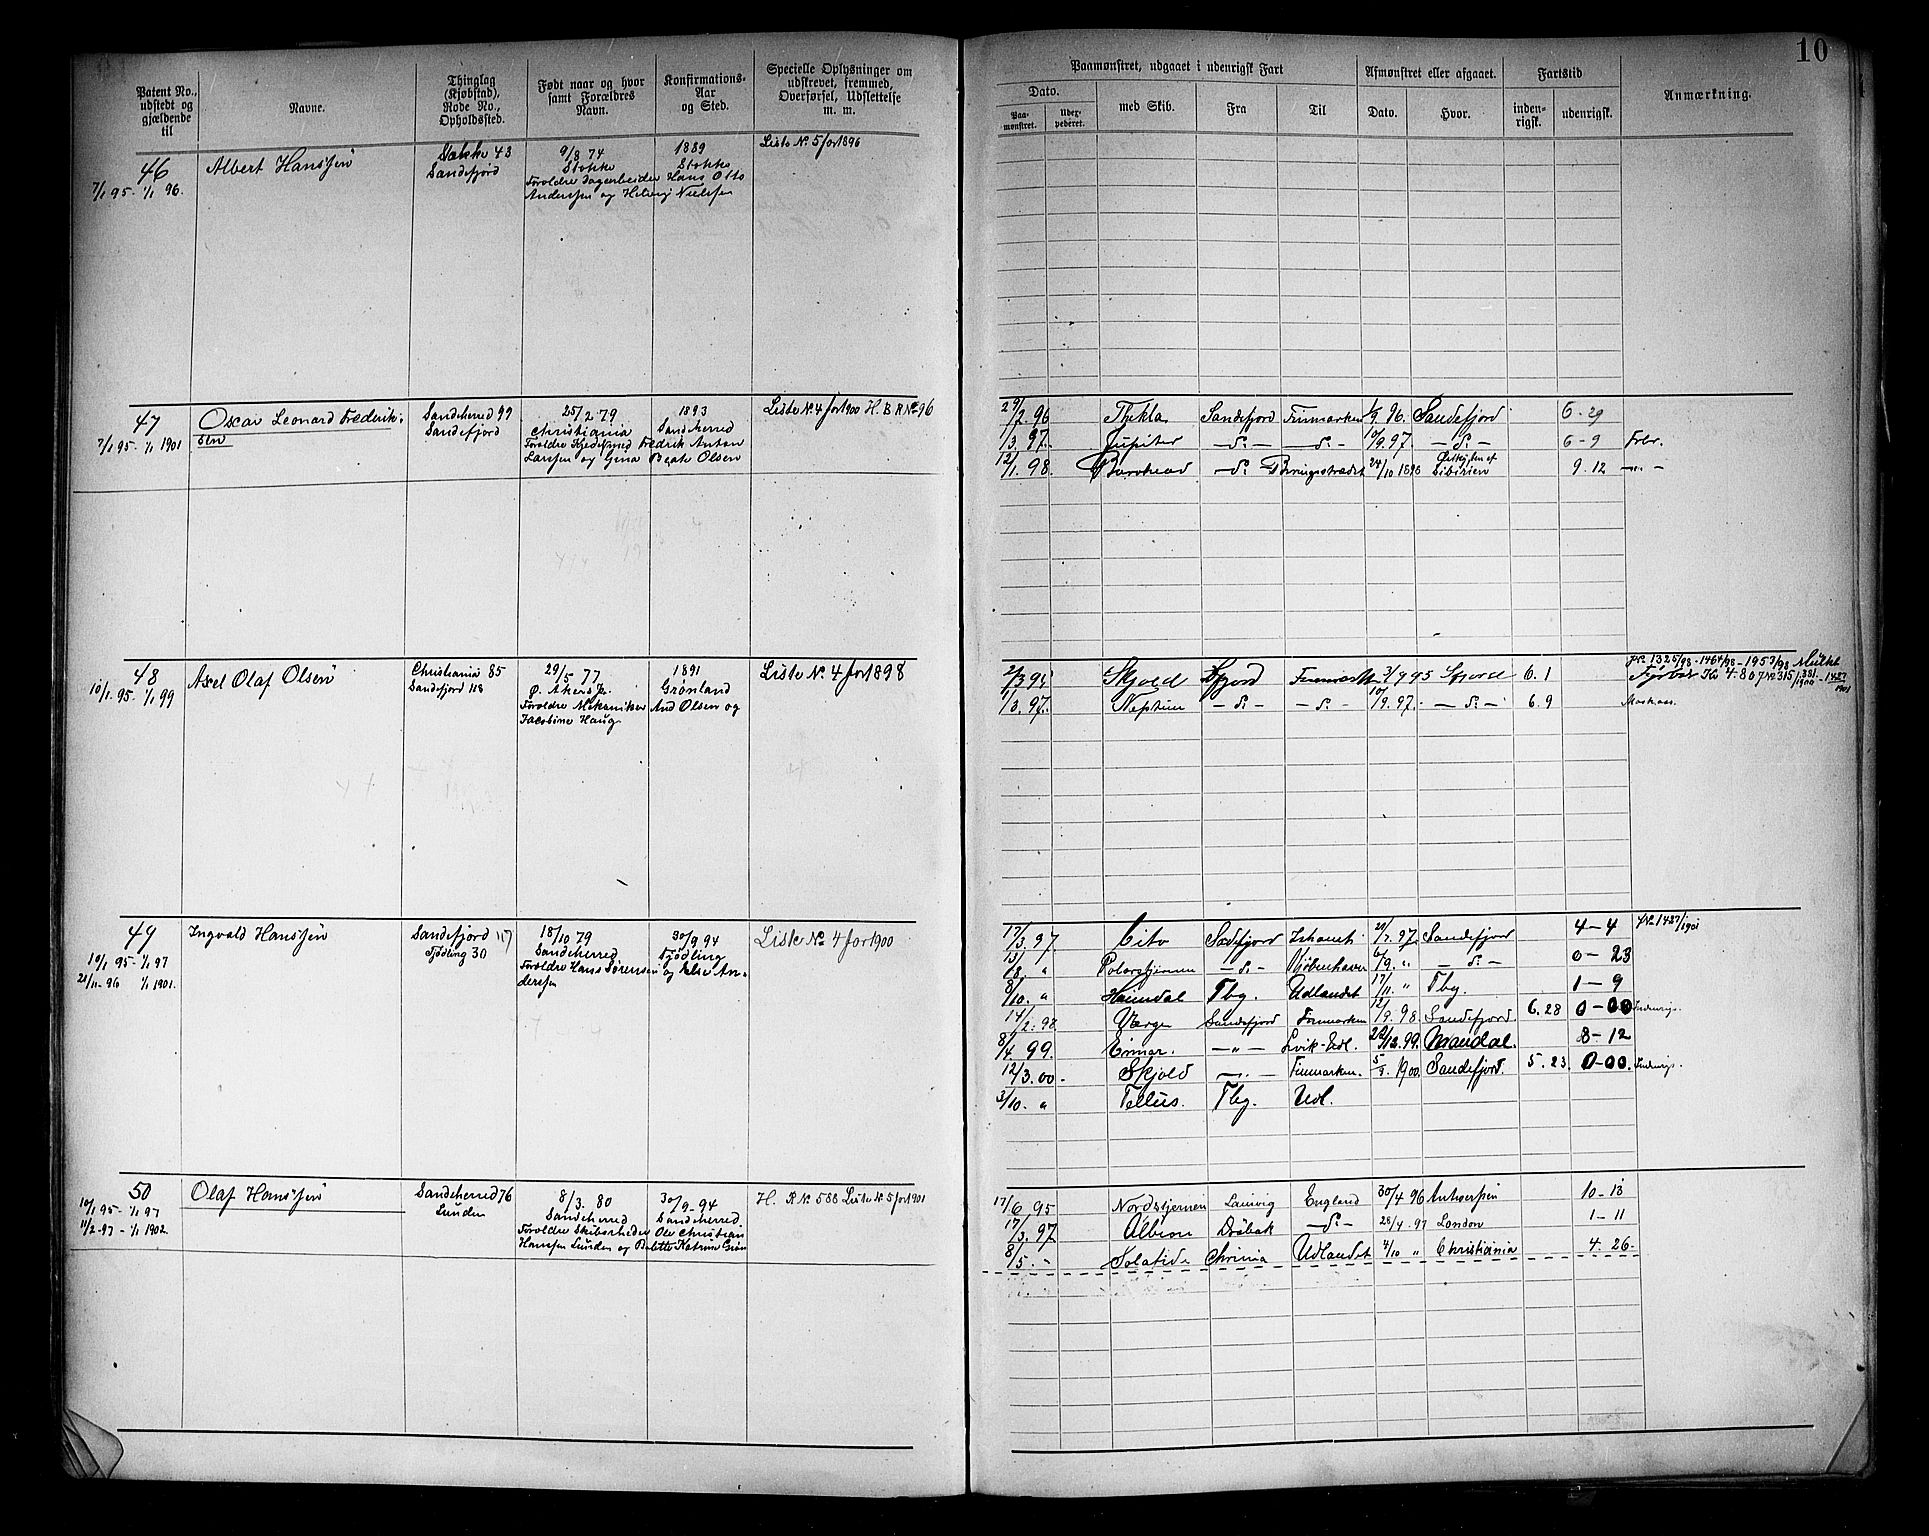 10
Patent No., udstedt og gjældende til
Navne.
Thinglag (Kjøbstad), Rode No., Opholdssted.
Født naar og hvor samt Forældres Navn.
Konfirmations- Aar og Sted.
Specielle Oplysninger om udskrevet, fremmed, Overførsel, Udslettelse m. m.
Paamønstret, udgaaet i udenrigsk Fart
Afmønstret eller afgaaet.
Fartstid
Anmærkning.
Dato.
med Skib.
Fra
Til
Dato.
Hvor.
inden- rigsk.
udenrigsk.
Paa- mønstret.
Uder- pederet.
46 Albert Hanssen Stokke 43 9/8 74 1889 Liste No. 5 for 1896
7/1 95 - 1/1 96. Sandefjord Stokke Stokke
Forældre Dagarbeider Hans Otto
Andersen og Helvig Nielsen
47 Oscar Leonard Frederik- Sandeherred 99 25/2 79 1893 Liste No. 4 for 1900 H. B R No. 96
sen Sandefjord Christiania Sandeherred
7/1 95 - 1/1 1901 Forældre Kjedelsmed Fredrik Anton
Larssen og Gina Beate Olsen
29/2 96 Thekla Sandefjord Finmarken 1/9 96. Sandefjord 6-29
1/3 97. Jupiter — do — — do — 10/9 97. — do — 6-9 Frbr.
12/1. 98. — do Beringstrædet 24/10 1898 Sibirien 9.12 — " —
48 Axel Olaf Olsen Christiania 85 29/5 77 1891 Liste No. 4 for 1898
10/1. 95 - 1/1 99 Sandefjord 118 Ø. Akers Grønland
Forældre Mekaniker And Olsen og
Jacobine Haug
JNo. 1325/98 - 1464/98 - 1953/98
2/3 95 Skjold Sfjord 3/9 95 Sfjord 6.1
1/3. 97. Neptun — do — — do — 10/9. 97. — do — 6.9
49 Ingvald Hanssen Sandefjord 117 18/10 79 30/9 94 Liste No. 4 for 1900
10/1 95 - 1/1 97 Tjødling 30 Sandeherred Tjødling
21/11-96 1/1 1901. Forældre Hans Sørensen og Else An-
dersen
17/3. 97. Cito Sandefjord 97. Sandefjord 4-4 JNo. 1487/1901
13/8 " Polarstjernen — do — Kjøbenhavn 6/9. " — do — 0-23
8/10. " Heimdal Tbg. Udlandet 17/11 " Tbg. 1-9
14/2. 98. Værgen Sandefjord Finmarken 12/9. 98. Sandefjord 6.28 0-00 Indenrigs.
8/4. 99. Einar. — " — Lvik-Udl. 99. Mandal. 8-12
12/3. 00. Skjold — " — Finmarken. 5/9. 1900. Sandefjord. 5.23 0-00. Indenrigs.
3/10. " Tellus. Tbg. Udl.
50 Olaf Hanssen Sandeherred 76 8/3. 80 30/9-94 H. R No. 588 Liste No. 5 for 1901
10/1 95 - 1/1 97 Lunden Sandeherred Sandeherred.
11/2-97 - 1/1 1902. Forældre Skibsrheder Ole Christian
Hanssen Lunden og Bolette Katrine Grøn
17/6 95 Nordstjernen Laurvig England 30/4 96 Antwerpen 10-13
17/3. 97 Albion Drøbak — do — 28/4. 97 London 1-11
8/5. - Solatide Chrinia Udlandet 4/10 " Christiania 4.26.